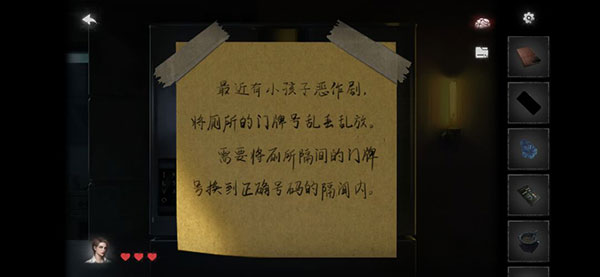 最近有小孩子恶作剧,
将厕所的门牌号乱丢乱放。
需要将厕所隔间的门牌
号换到正确号码的隔间内。